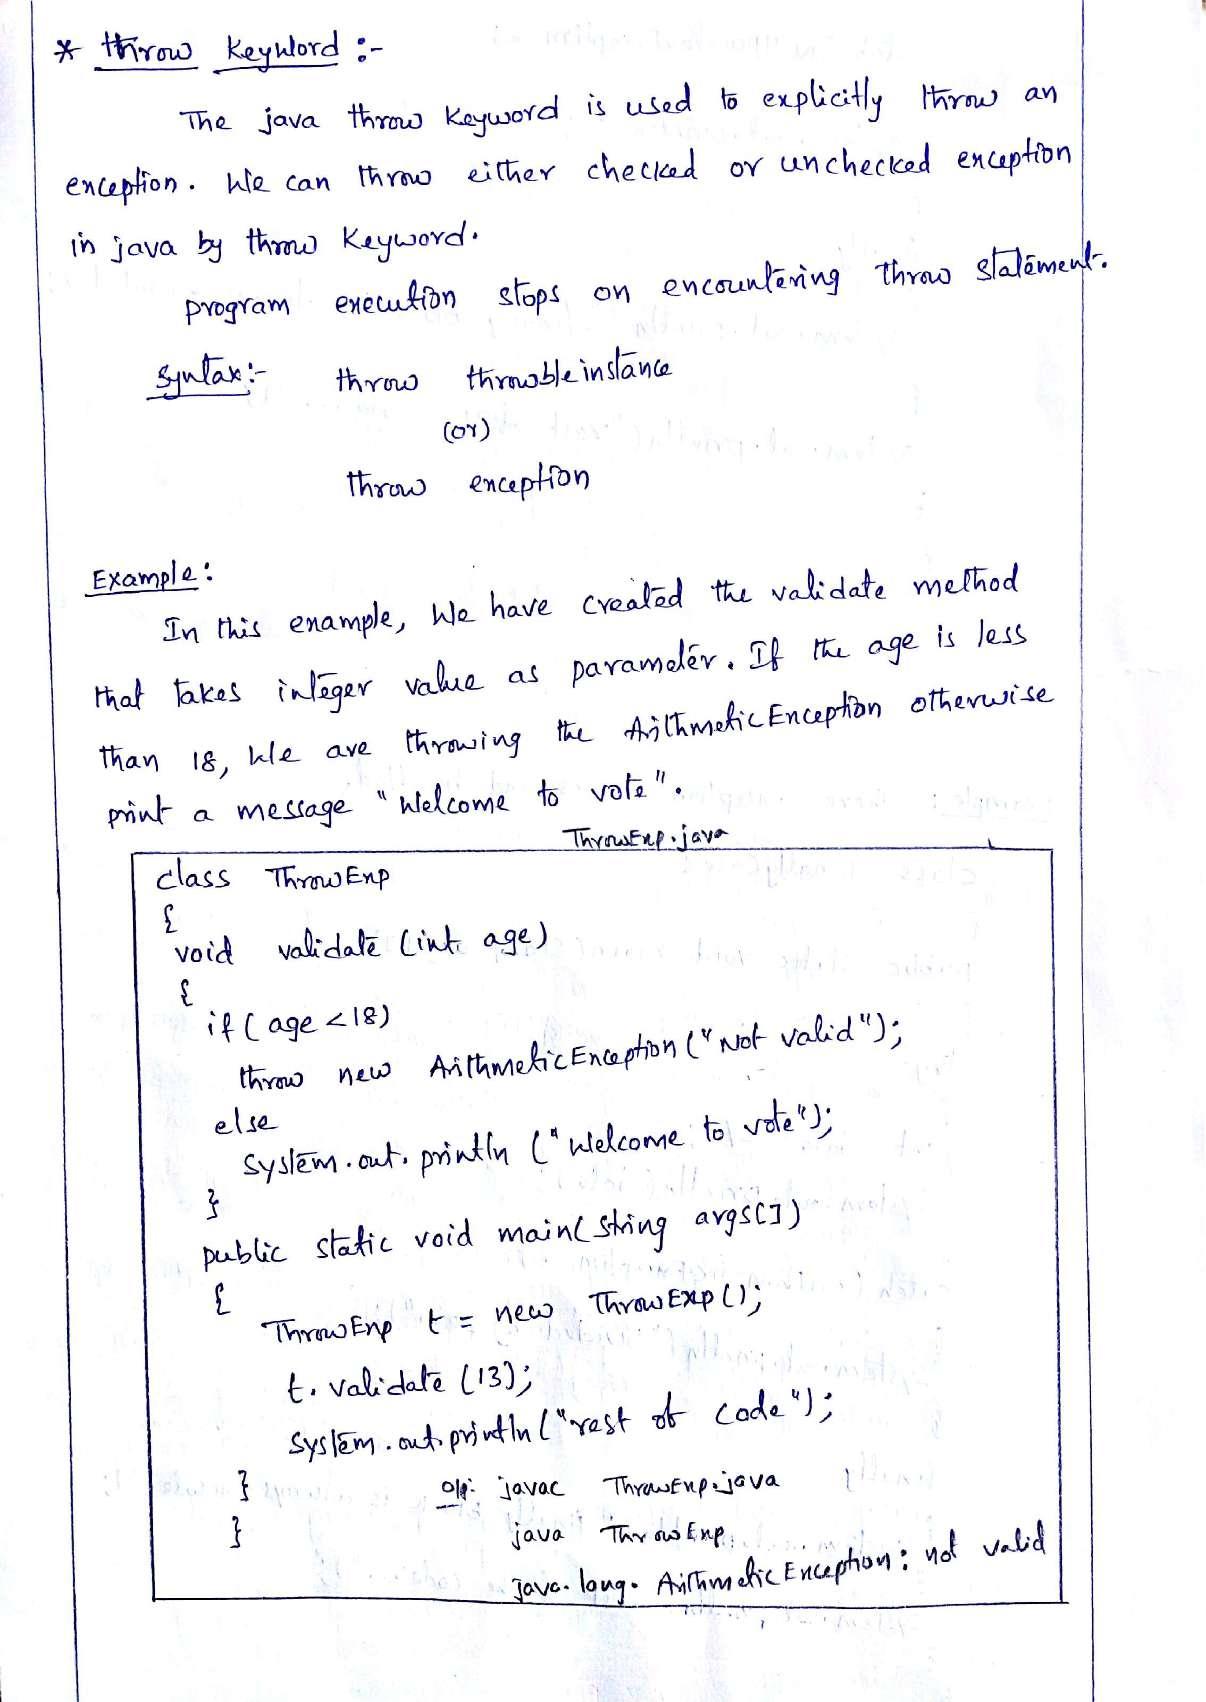 * throw Keyword :-
The java throw keyword is used to explicitly throw an
exception. We can throw either checked or unchecked exception
in java by throw keyword.
program execution stops on encountering throw statement.
Syntax:- throw throwbleinstance
(or)
throw exception
Example:
In this example, We have created the validate method
that takes integer value as parameter. If the age is less
than 18, We are throwing the ArithmeticException otherwise
print a message "Welcome to vote".
ThrowExp.java
class ThrowExp
{
void validate (int age)
{
if (age <18)
throw new ArithmeticException ("Not valid");
else
System.out.println ("Welcome to vote");
}
public static void main(String args[])
{
ThrowExp t = new ThrowExp ();
t.validate (13);
System.out.println ("rest of code");
} o/p: javac ThrowExp.java
} java ThrowExp
java.lang.ArithmeticException: not valid